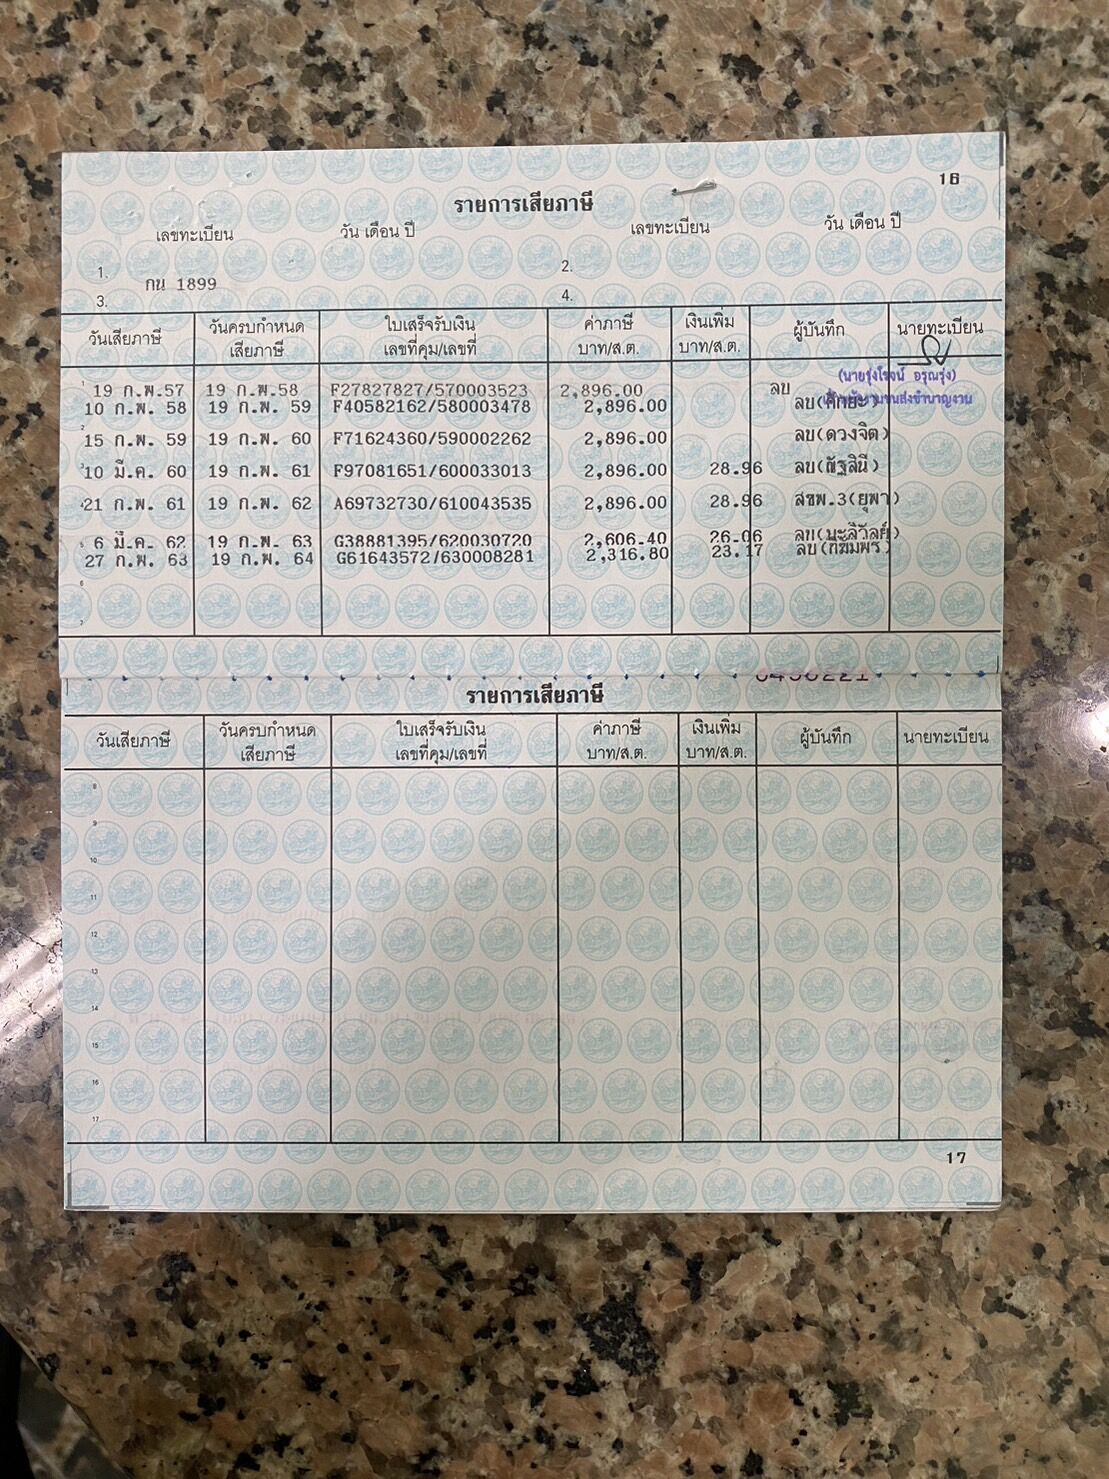 16
รายการเสียภาษี
เลขทะเบียน วัน เดือน ปี เลขทะเบียน วัน เดือน ปี
1. 2.
กน 1899
3. 4.
วันเสียภาษี วันครบกำหนดเสียภาษี ใบเสร็จรับเงิน เลขที่คุม/เลขที่ ค่าภาษี บาท/ส.ต. เงินเพิ่ม บาท/ส.ต. ผู้บันทึก นายทะเบียน
(นายรุ่งโรจน์ อรุณรุ่ง)
1 19 ก.พ.57 19 ก.พ.58 F27827827/570003523 2,896.00 ลบ
10 ก.พ. 58 19 ก.พ. 59 F40582162/580003478 2,896.00
2 15 ก.พ. 59 19 ก.พ. 60 F71624360/590002262 2,896.00 ลบ(ดวงจิต)
3 10 มี.ค. 60 19 ก.พ. 61 F97081651/600033013 2,896.00 28.96 ลบ(ณัฐสินี)
4 21 ก.พ. 61 19 ก.พ. 62 A69732730/610043535 2,896.00 28.96 สขพ.3(ยุพา)
5 6 มี.ค. 62 19 ก.พ. 63 G38881395/620030720 2,606.40 26.06 ลบ(มะลิวัลย์)
27 ก.พ. 63 19 ก.พ. 64 G61643572/630008281 2,316.80 23.17
6
7
รายการเสียภาษี
วันเสียภาษี วันครบกำหนดเสียภาษี ใบเสร็จรับเงิน เลขที่คุม/เลขที่ ค่าภาษี บาท/ส.ต. เงินเพิ่ม บาท/ส.ต. ผู้บันทึก นายทะเบียน
8
9
10
11
12
13
14
15
16
17
17